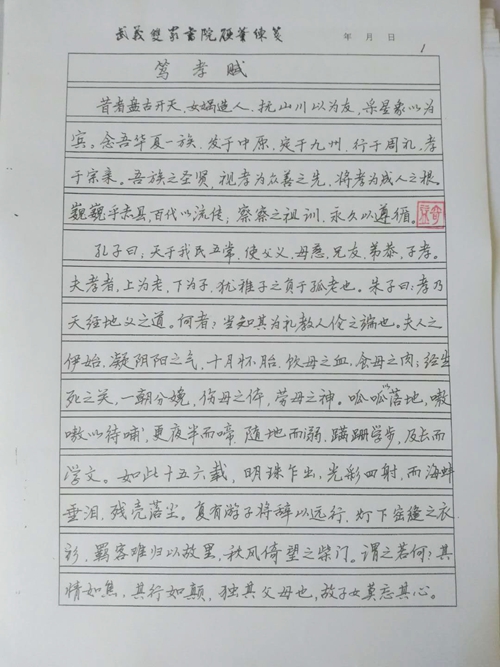 武义双泉书院硬笔练笺 年 月 日
1
笃孝赋
昔者盘古开天,女娲造人,抚山川以为友,采星象以为
宾,念吾华夏一族,发于中原,定于九州,行于周礼,孝
于宗亲。吾族之圣贤,视孝为众善之先,将孝为成人之根。
巍巍乎赤县,百代以流传;察察之祖训,永久以遵循。
孔子曰:天于我民五常,使父义,母慈,兄友,弟恭,子孝。
夫孝者,上为老,下为子,犹稚子之负于孤老也。朱子曰:孝乃
天经地义之道。何者?当知其为礼教人伦之端也。夫人之
伊始,凝阴阳之气,十月怀胎,饮母之血,食母之肉;经生
死之关,一朝分娩,伤母之体,劳母之神。呱呱落地,嗷
嗷以待哺,更夜半而啼,随地而溺,蹒跚学步,及长而
学文。如此十五六载,明珠乍出,光彩四射,而海蚌
垂泪,残壳落尘。复有游子将辞以远行,灯下密缝之衣
衫,羁客难归以故里,秋风倚望之柴门。谓之若何?其
情如焦,其行如颠,独其父母也,故子女莫忘其心。